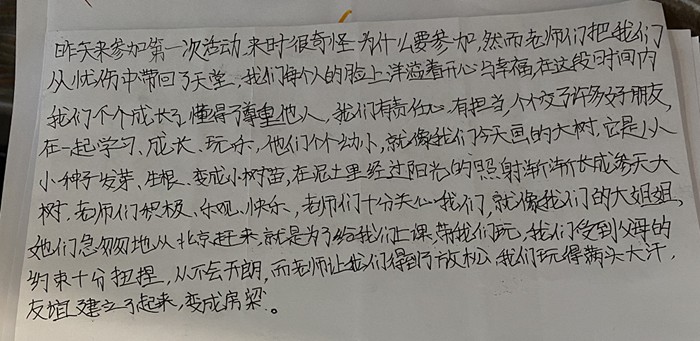 昨天来参加第一次活动来时很奇怪为什么要参加,然而老师们把我们
从忧伤中带回了天堂,我们每个人的脸上洋溢着开心与幸福,在这段时间内
我们个个成长了懂得了尊重他人,我们有责任心有担当,个个交了许多好朋友,
在一起学习、成长、玩乐,他们个个幼小,就像我们今天画的大树,它是从
小种子发芽、生根、变成小树苗,在泥土里经过阳光的照射渐渐长成参天大
树,老师们积极、乐观、快乐,老师们十分关心我们,就像我们的大姐姐,
她们急匆匆地从北京赶来,就是为了给我们上课,带我们玩,我们受到父母的
约束十分扭捏,从不会开朗,而老师让我们得到了放松,我们玩得满头大汗,
友谊建立了起来,变成房梁。